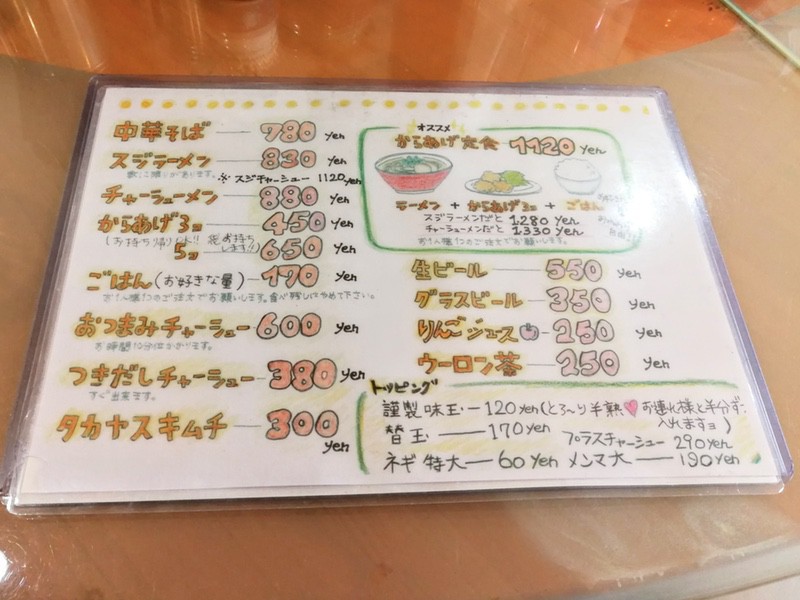 中華そば 780 yen
スジラーメン 830 yen
※スジチャーシュー 1120yen
チャーシューメン 880 yen
からあげ 3コ 450 yen
(お持ち帰りOK!! 袋お持ちします!!)
5コ 650 yen
ごはん(お好きな量) 170 yen
お1人様1つのご注文でお願いします。食べ残しはやめて下さい。
おつまみチャーシュー 600 yen
お時間10分位かかります。
つきだしチャーシュー 380 yen
すぐ出来ます。
タカヤスキムチ 300 yen
オススメ
からあげ定食 1120 yen
ラーメン + からあげ3コ + ごはん
スジラーメンだと 1280 yen
チャーシューメンだと 1330 yen
お1人様1つのご注文でお願いします。
生ビール 550 yen
グラスビール 350 yen
りんごジュース 250 yen
ウーロン茶 250 yen
トッピング
謹製味玉 120 yen (とろ〜り半熟♥お連れ様と半分ずつ入れますョ)
替玉 170 yen
プラスチャーシュー 290 yen
ネギ特大 60 yen メンマ大 190 yen